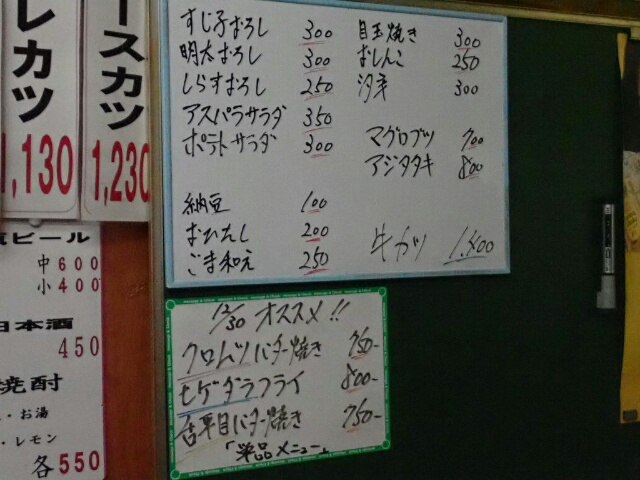 レカツ
1,130
ースカツ
1,230
ビール
中 600
小 400
日本酒
450
焼酎
・お湯
・レモン
各550
すじ子おろし 300
明太おろし 300
しらすおろし 250
アスパラサラダ 350
ポテトサラダ 300
納豆 100
おひたし 200
ごま和え 250
目玉焼き 300
おしんこ 250
300
マグロブツ 700
アジタタキ 800
牛カツ 1,400
12/30 オススメ!!
クロムツバター焼き 750-
ヒゲダラフライ 800-
舌平目バター焼き 750-
「単品メニュー」